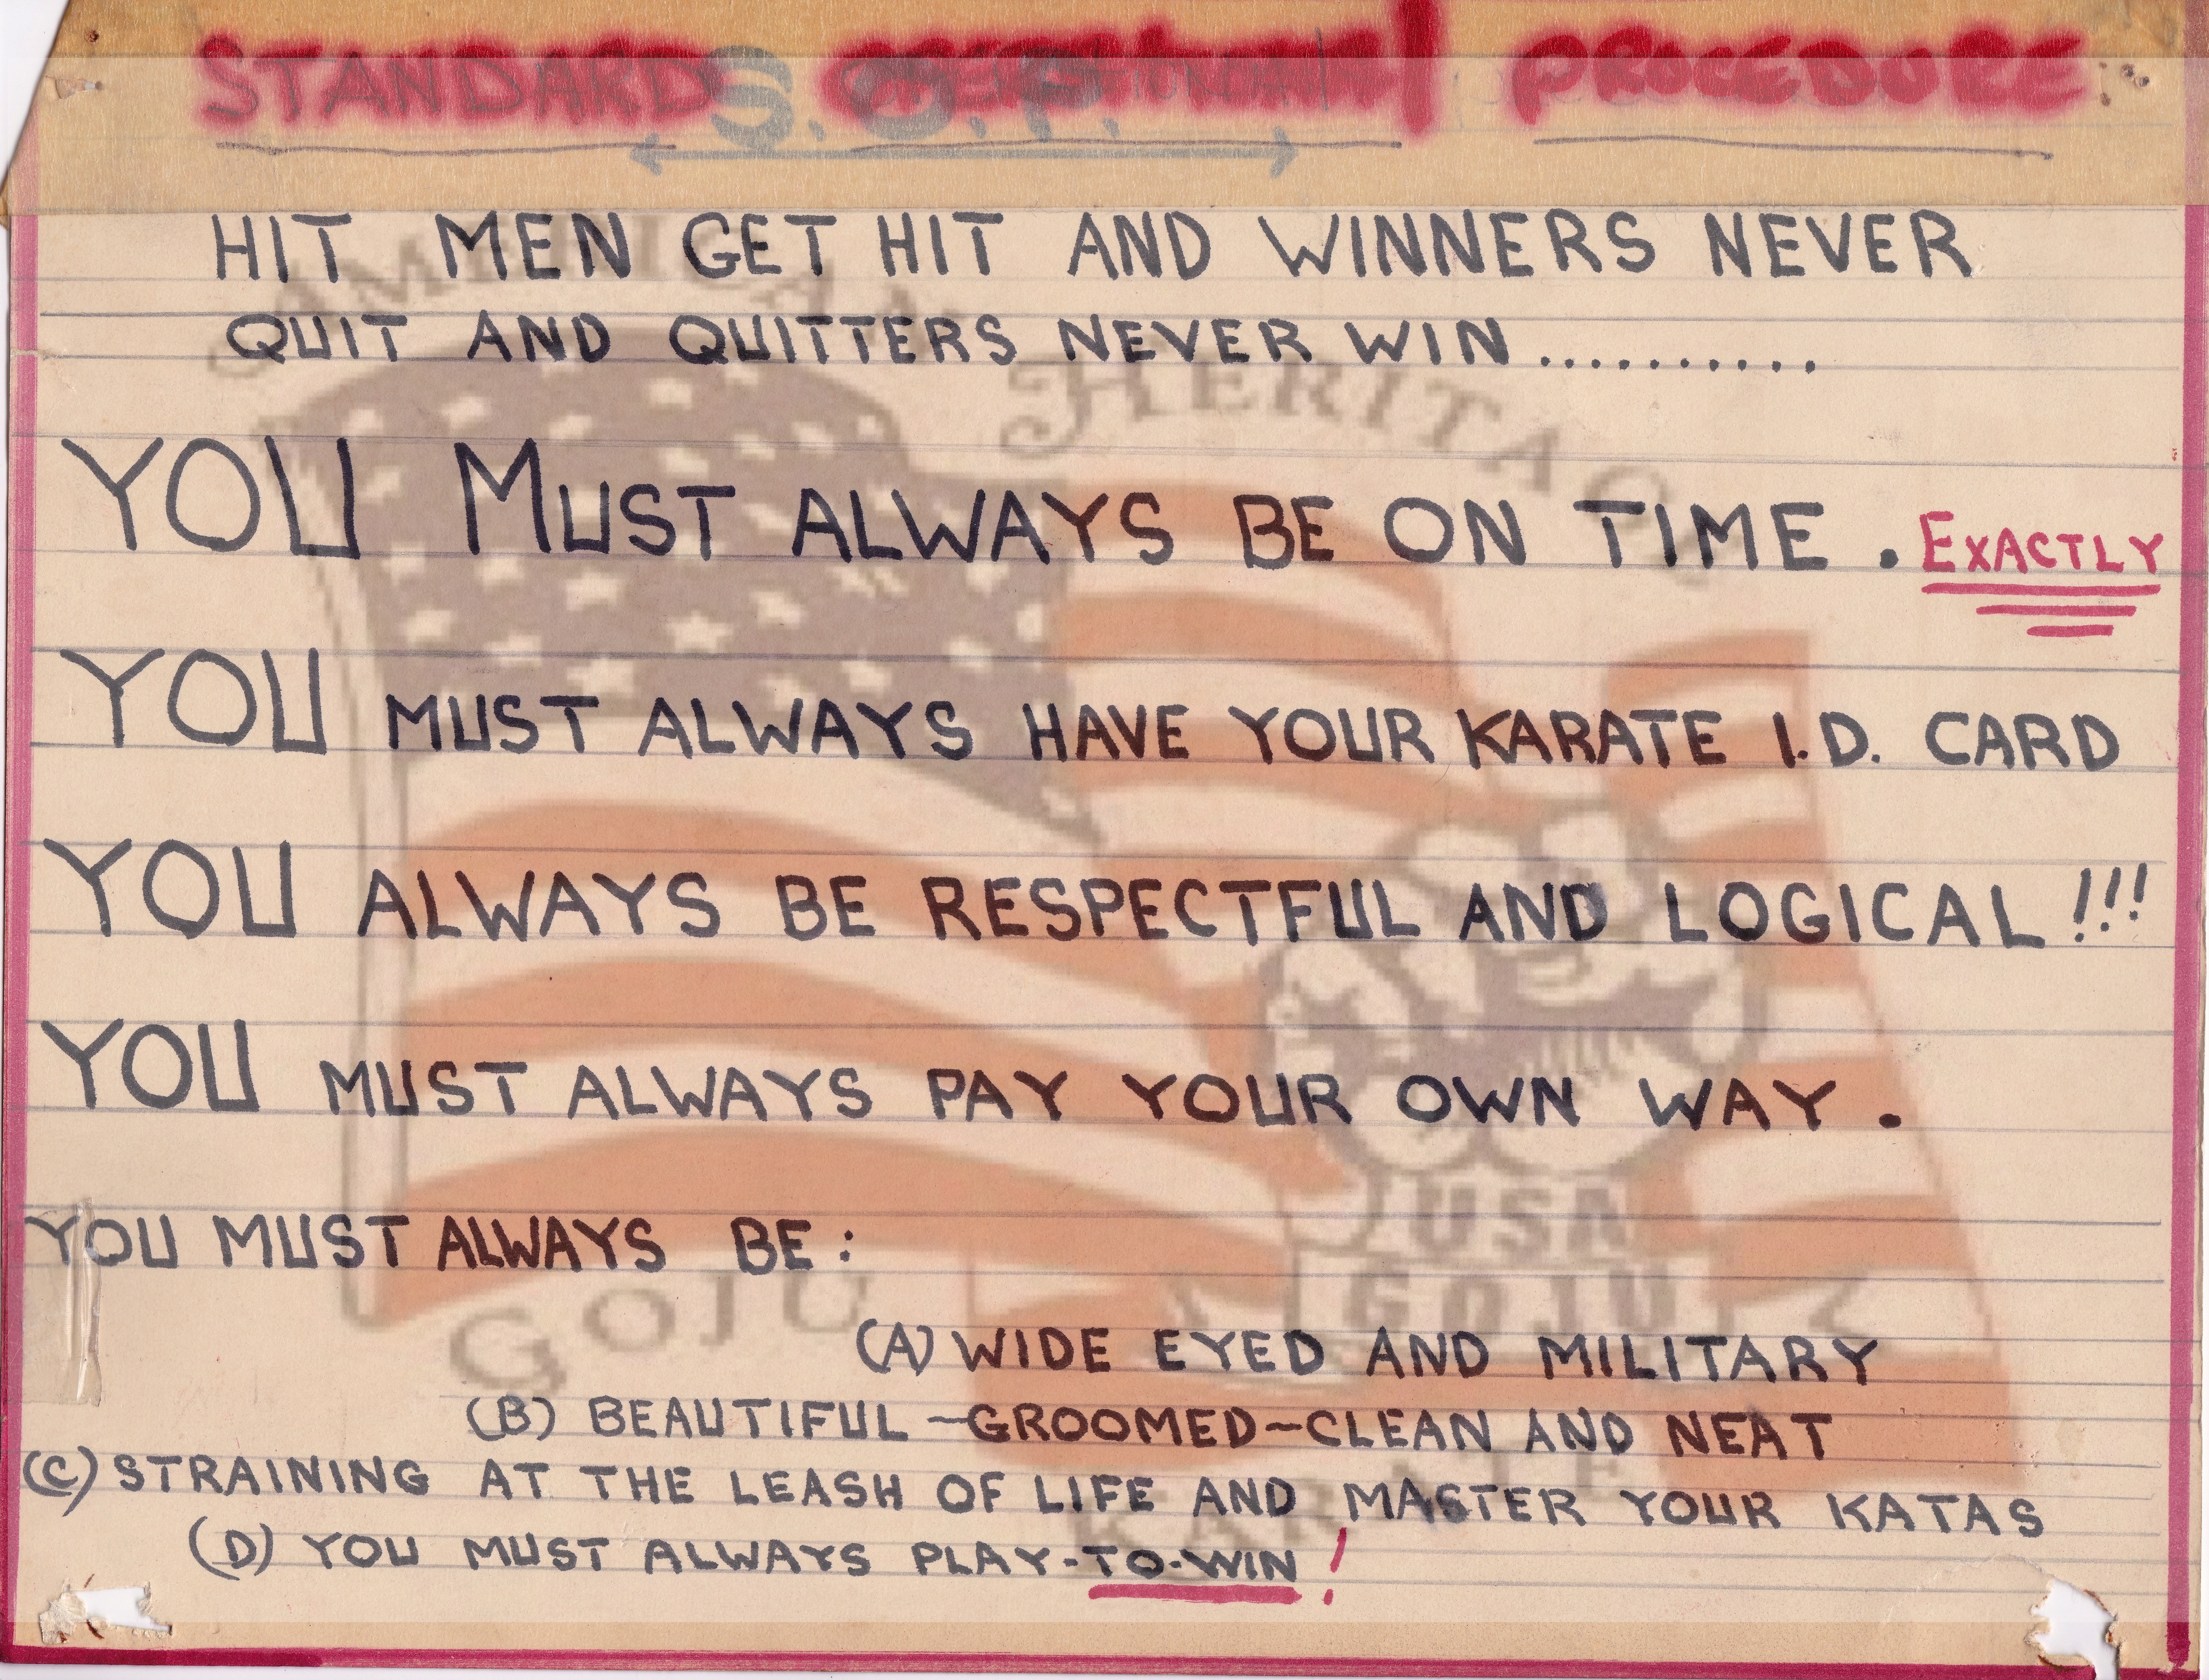 STANDARD OPERATIONAL PROCEDURE
S.O.P.
HIT MEN GET HIT AND WINNERS NEVER
QUIT AND QUITTERS NEVER WIN..........
YOU MUST ALWAYS BE ON TIME. EXACTLY
YOU MUST ALWAYS HAVE YOUR KARATE I.D. CARD
YOU ALWAYS BE RESPECTFUL AND LOGICAL!!!
YOU MUST ALWAYS PAY YOUR OWN WAY.
YOU MUST ALWAYS BE:
(A) WIDE EYED AND MILITARY
(B) BEAUTIFUL ~GROOMED~CLEAN AND NEAT
(C) STRAINING AT THE LEASH OF LIFE AND MASTER YOUR KATAS
(D) YOU MUST ALWAYS PLAY-TO-WIN!
AMERICAN HERITAGE
USA
GOJU
GOJU
KARATE